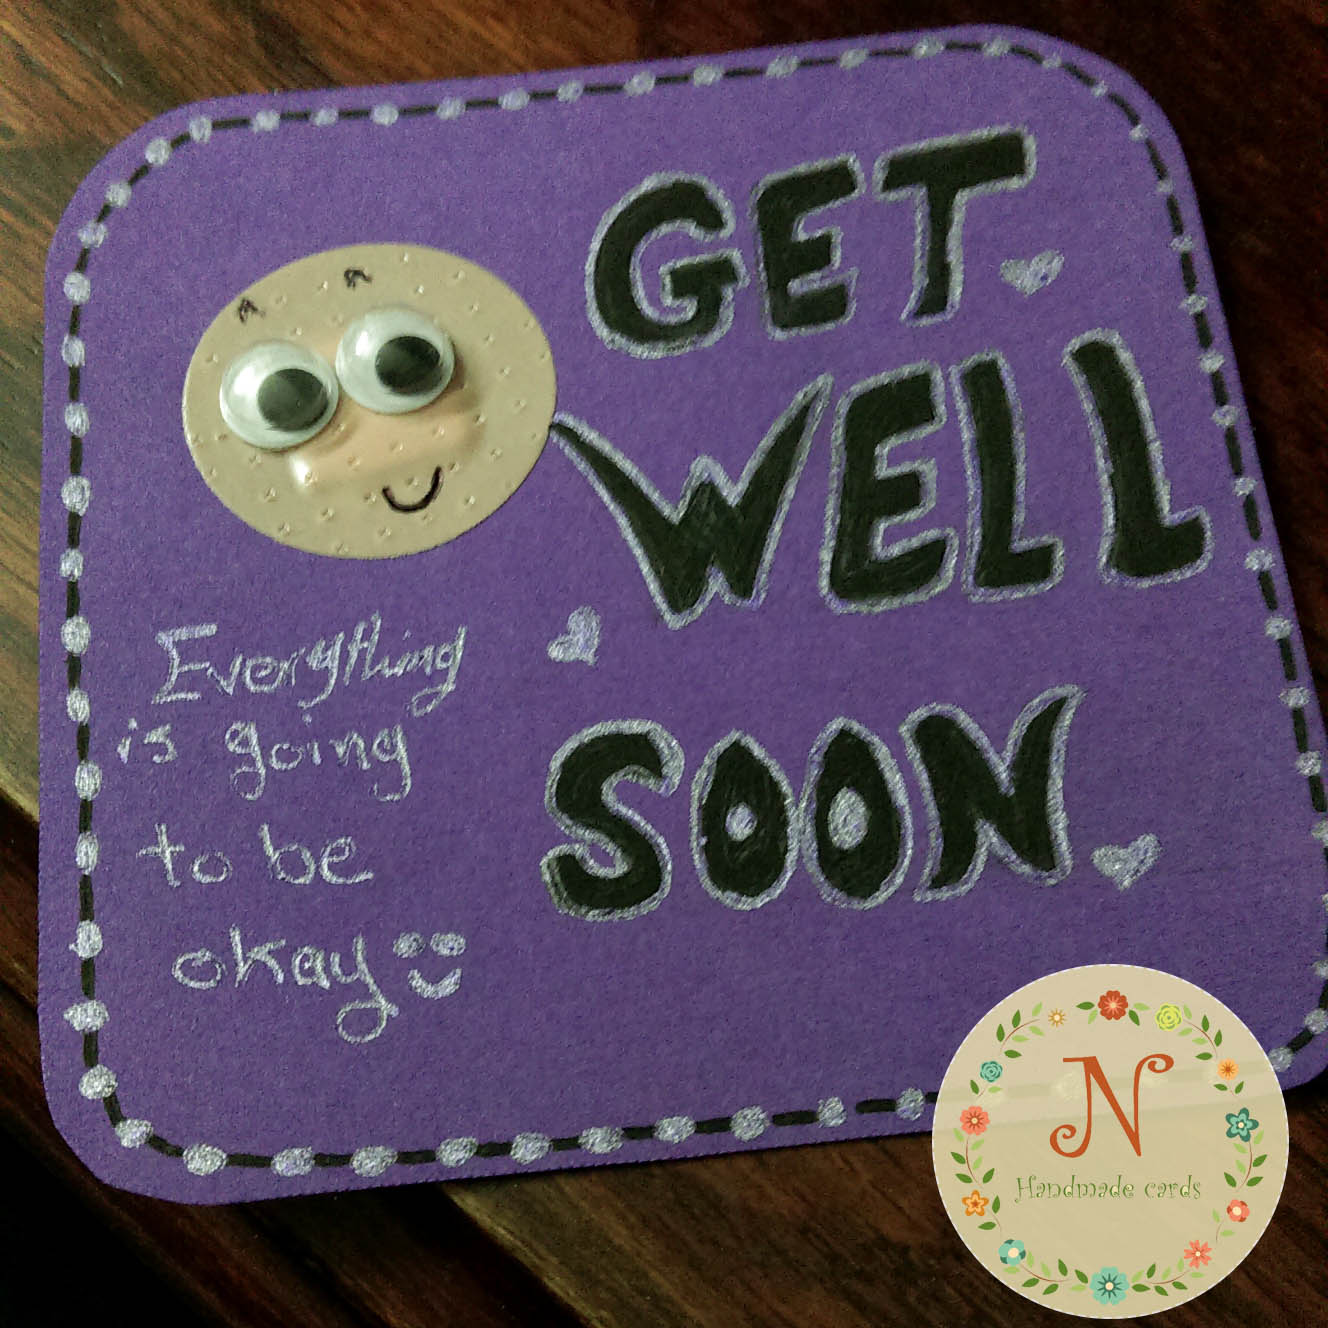 GET
WELL
SOON
Everything
is going
to be
okay
N
Handmade cards